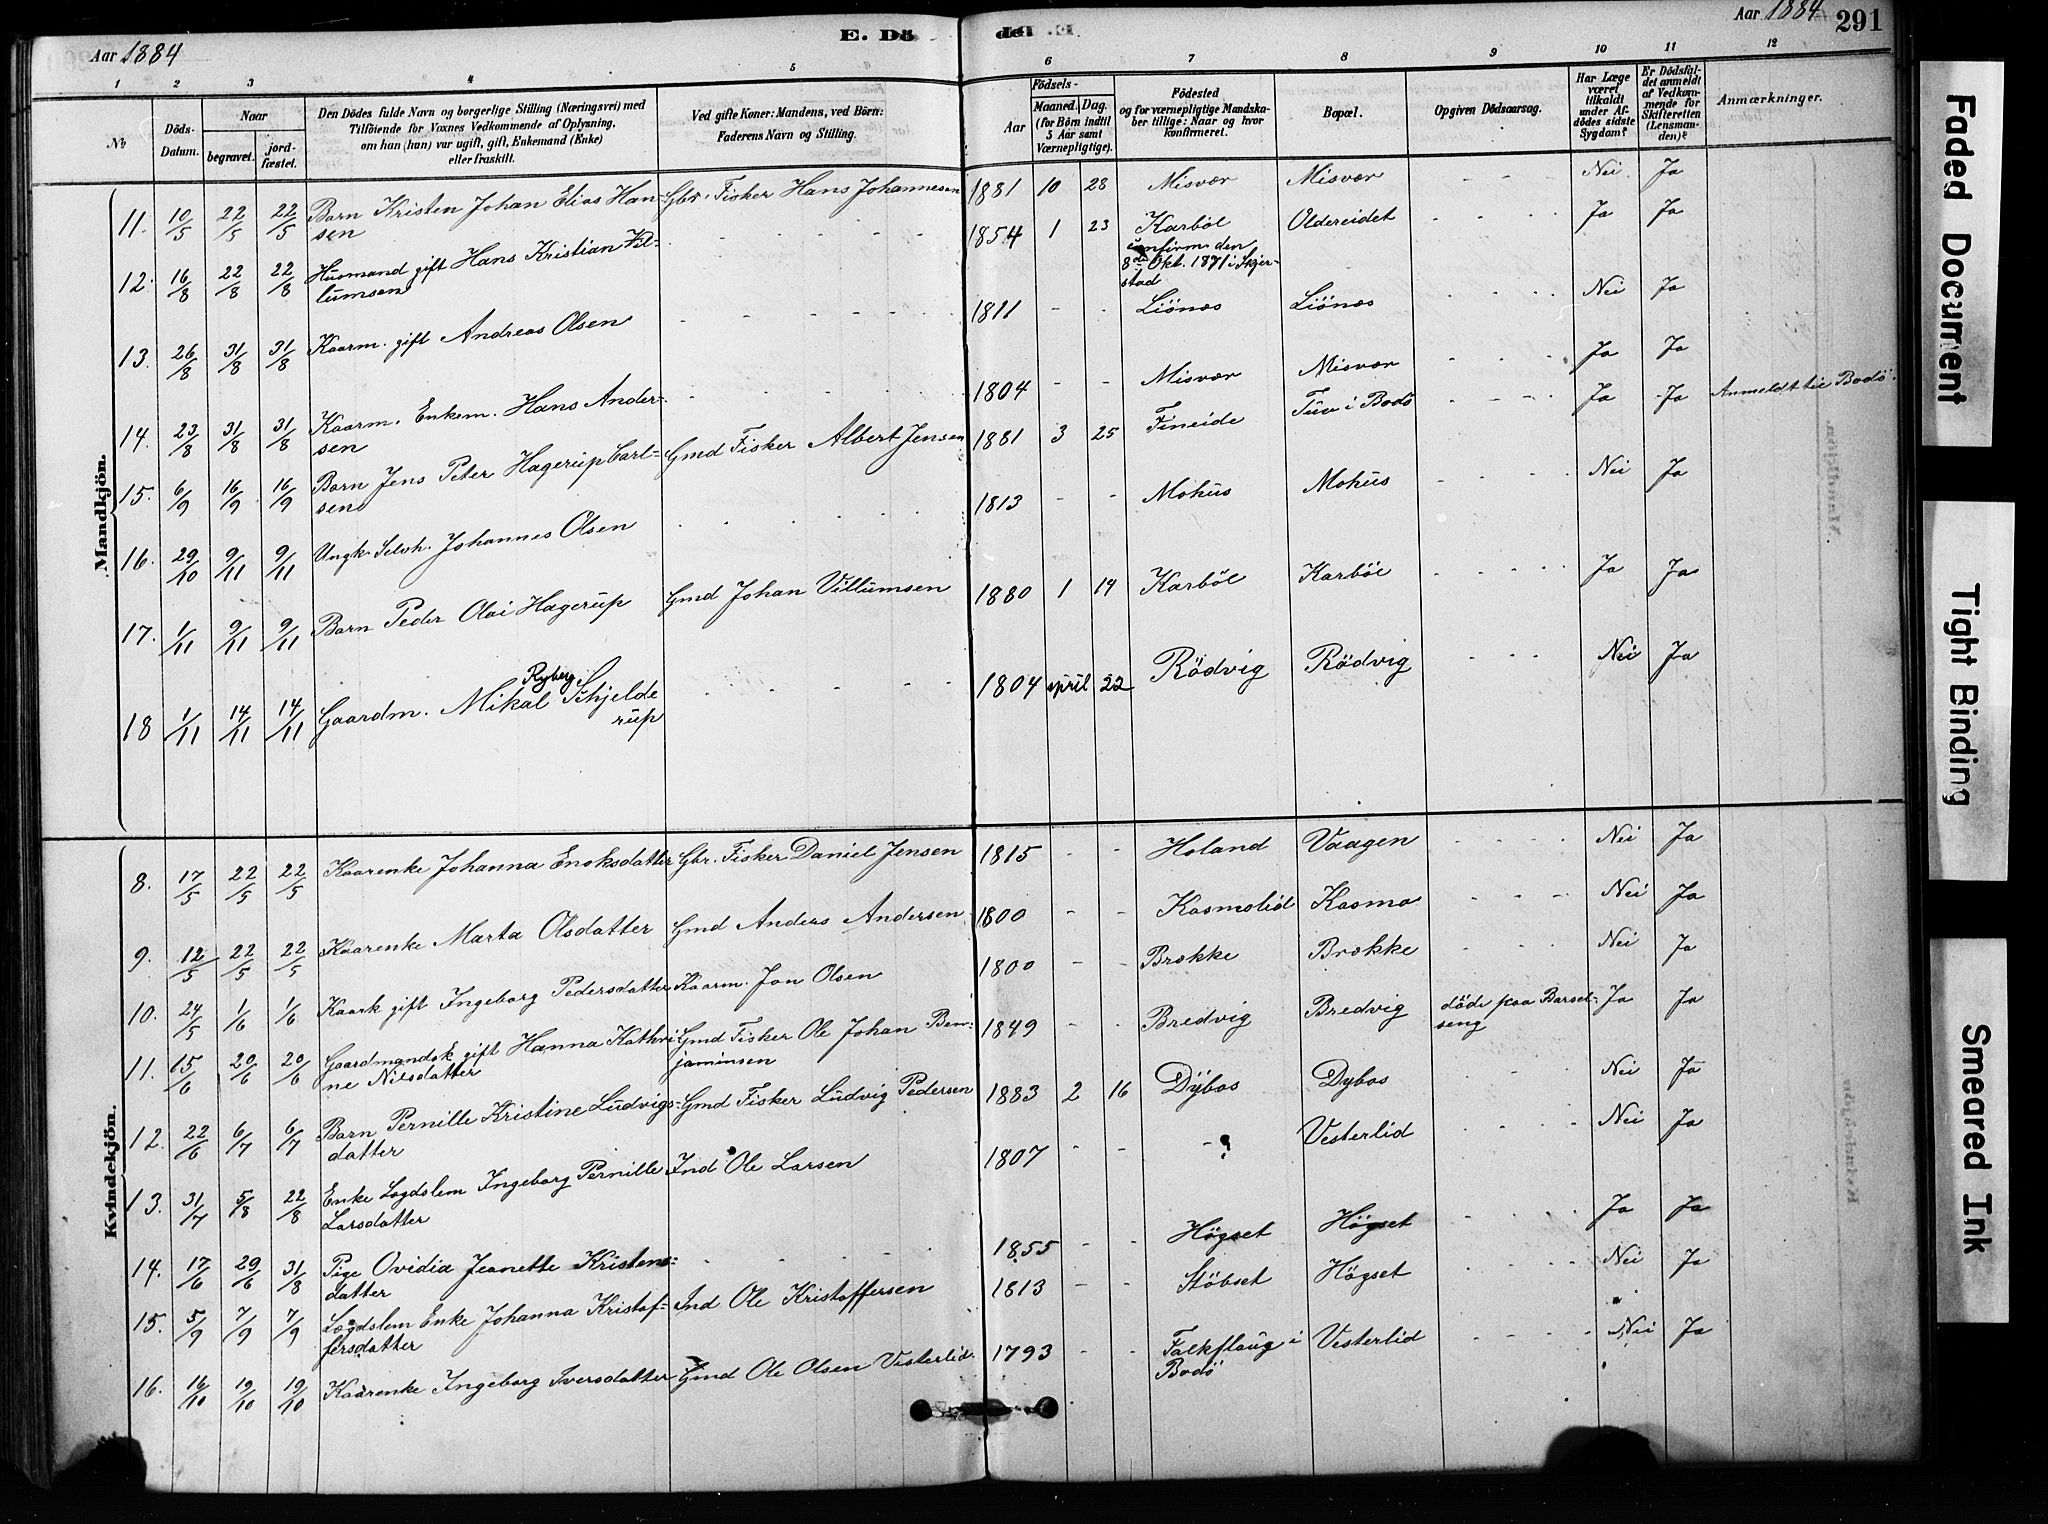 Aar 1884
E. Dö
1 2 3 4 5
No
Döds-Datum.
Naar
begravet.
jord-fæstet.
Den Dödes fulde Navn og borgerlige Stilling (Næringsvei) med
Tilföiende for Voxnes Vedkommende af Oplysning,
om han (hun) var ugift, gift, Enkemand (Enke)
eller fraskilt.
Ved gifte Koner: Mandens, ved Börn:
Faderens Navn og Stilling.
Mandkjön.
11. 10/5 22/5 22/5 Barn Kristen Johan Elias Han- Gbr. Fisker Hans Johannesen
sen
12. 16/8 22/8 22/8 Husmand gift Hans Kristian Vil-
lumsen
13. 26/8 31/8 31/8 Kaarm. gift Andreas Olsen
14. 23/8 31/8 31/8 Kaarm. Enkem. Hans Ander-
sen
15. 6/9 16/9 16/9 Barn Jens Peter Hagerup Carl- Gmd Fisker Albert Jensen
sen
16. 29/10 9/11 9/11 Ungk. Selvh. Johannes Olsen
17. 1/11 9/11 9/11 Barn Peder Olai Hagerup Gmd Johan Villumsen
Ryberg
18 1/11 14/11 14/11 Gaardm. Mikal Schjelde
rup
Kvindekjön.
8. 17/5 22/5 22/5 Kaarenke Johanna Enoksdatter Gbr. Fisker Daniel Jensen
9. 12/5 22/5 22/5 Kaarenke Marta Olsdatter Gmd Anders Andersen
10. 24/5 1/6 1/6 Kaark gift Ingeborg Pedersdatter Kaarm. Jon Olsen
11. 15/6 20/6 20/6 Gaardmandsk gift Hanna Kathri Gmd Fisker Ole Johan Ben-
ne Nilsdatter jaminsen
12. 22/6 6/7 6/7 Barn Pernille Kristine Ludvigs- Gmd Fisker Ludvig Pedersen
datter
13. 31/7 5/8 22/8 Enke Lægdslem Ingeborg Pernille Ind Ole Larsen
Larsdatter
14. 17/6 29/6 31/8 Pige Ovidia Jeanette Kristens-
datter
15. 5/9 7/9 7/9 Lægdslem Enke Johanna Kristof- Ind Ole Kristoffersen
fersdatter
16. 16/10 19/10 19/10 Kaarenke Ingeborg Iversdatter Gmd Ole Olsen Vesterlid
del E.
Aar 1884
291
6 7 8 9 10 11 12
Aar
Födsels-
Maaned. Dag.
(for Börn indtil
5 Aar samt
Værnepligtige).
Födested
og for værnepligtige Mandska-
ber tillige: Naar og hvor
konfirmeret.
Bopæl.
Opgiven Dödsaarsag.
Har Læge
været
tilkaldt
under Af-
dödes sidste
Sygdom?
Er Dödsfal-
det anmeldt
af Vedkom-
mende for
Skifteretten
(Lensman-
den)?
Anmærkninger.
1881 10 28 Misvær Misvær - - - Nei. Ja
1854 1 23 Karböl Oldereidet - - - Ja Ja
confirm. den
8de Okt. 1871 i Skjer-
stad
1811 - - Liönæs Liönæs - - - Nei Ja
1804 - - Misvær Misvær - - - Ja Ja
1881 3 25 Fineide Tuv i Bodö - - - Ja Ja Anmeldt til Bodö.
1813 - - Mohus Mohus - - - Nei Ja
1880 1 14 Karböl Karböl - - - Ja Ja
1804 april 22 Rödvig Rödvig - - - Nei Ja
1815 - - Holand Vaagen - - - Nei Ja
1800 - - Kosmolid Kosmo - - - Nei Ja
1800 - - Brække Brække - - - Nei Ja
1849 - - Bredvig Bredvig döde paa Barsel- Ja Ja
seng
1883 2 16 Dybos Dybos - - Nei Ja
1807 - - - ? Vesterlid - - - Nei Ja
1855 - - Högset Högset - - - Ja Ja
1813 - - Stöbset Högset - - - Nei Ja
1793 - - Falkflaug i Vesterlid - - - Nei Ja
Bodö
Faded Document
Tight Binding
Smeared Ink